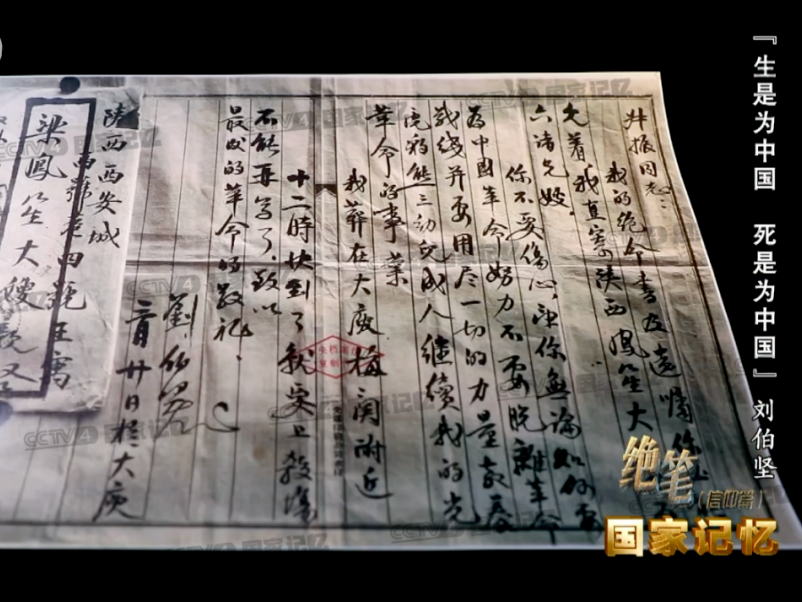 『生是为中国 死是为中国』刘伯坚
叔振同志:
我的绝命書及遗嘱你必
见着我直寄陕西鳳笙大
六诸兄嫂
你不要伤心,望你無論如何要
为中國革命努力不要脱離革命
战线并要用尽一切的力量教养
虎豹熊三幼兒成人继续我的光
革命的事業
我葬在大庾梅関附近
十二時快到了就要上殺場
不能再写了,致以
最后的革命的敬礼!
劉伯坚
三月廿日於大庾
陝西西安城
梁鳳笙大嫂
绝笔
(信仰篇)
国家记忆
CCTV4 国家记忆